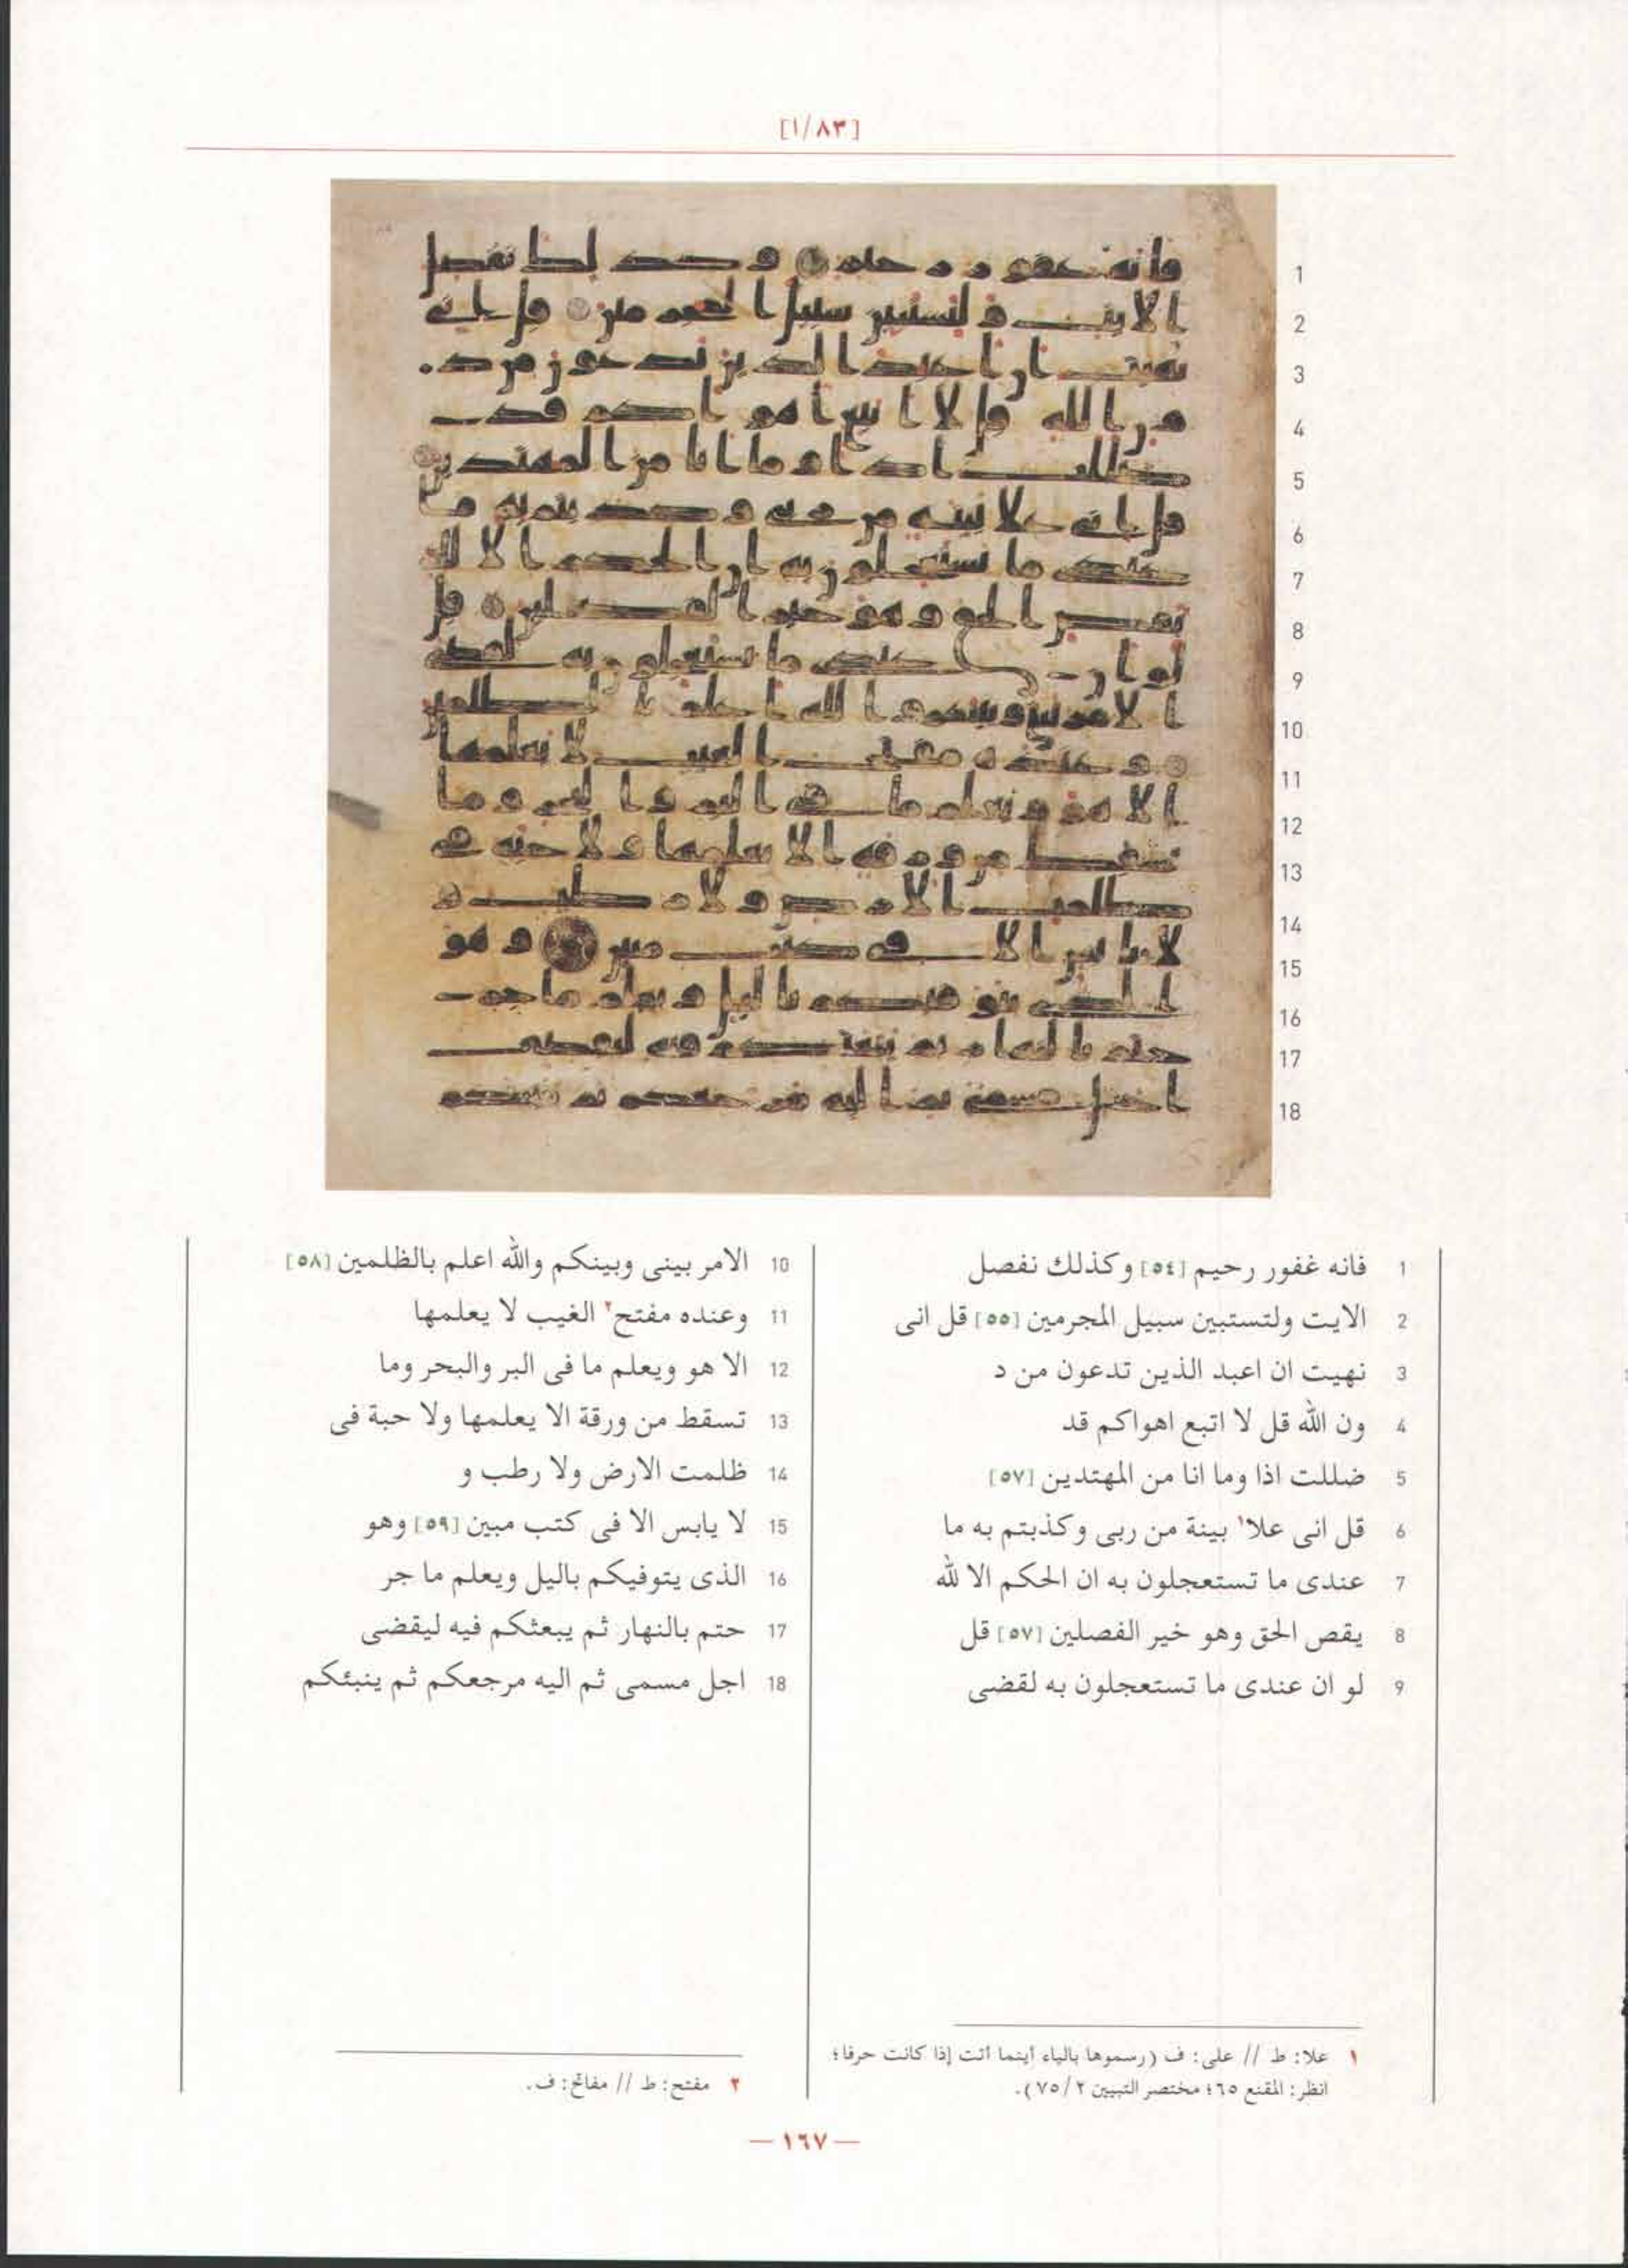 [١/٨٣]
1 فانه غفور رحيم [٥٤] وكذلك نفصل
2 الايت ولتستبين سبيل المجرمين [٥٥] قل انى
3 نهيت ان اعبد الذين تدعون من د
4 ون الله قل لا اتبع اهواكم قد
5 ضللت اذا وما انا من المهتدين [٥٧]
6 قل انى علا١ بينة من ربى وكذبتم به ما
7 عندى ما تستعجلون به ان الحكم الا لله
8 يقص الحق وهو خير الفصلين [٥٧] قل
9 لو ان عندى ما تستعجلون به لقضى
10 الامر بينى وبينكم والله اعلم بالظلمين [٥٨]
11 وعنده مفتح٢ الغيب لا يعلمها
12 الا هو ويعلم ما فى البر والبحر وما
13 تسقط من ورقة الا يعلمها ولا حبة فى
14 ظلمت الارض ولا رطب و
15 لا يابس الا فى كتب مبين [٥٩] وهو
16 الذى يتوفيكم باليل ويعلم ما جر
17 حتم بالنهار ثم يبعثكم فيه ليقضى
18 اجل مسمى ثم اليه مرجعكم ثم ينبئكم
١ علا: ط // على: ف (رسموها بالياء أينما أتت إذا كانت حرفا؛
انظر: المقنع ٦٥؛ مختصر التبيين ٧٥/٢).
٢ مفتح: ط // مفاتح: ف.
— ١٦٧ —